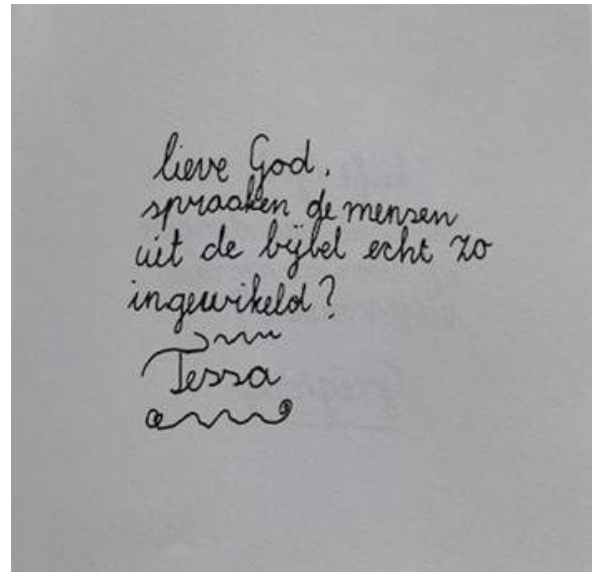 lieve God,
spraaken de mensen
uit de bijbel echt zo
ingewikeld?
Tessa